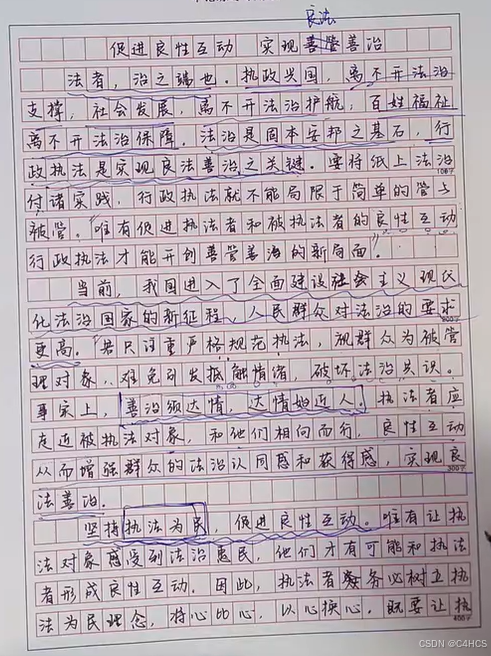 良法
促进良性互动 实现善管善治
法者，治之端也。执政兴国，离不开法治
支撑，社会发展，离不开法治护航，百姓福祉
离不开法治保障。法治是固本安邦之基石，行
政执法是实现良法善治之关键。要将纸上法治
付诸实践，行政执法就不能局限于简单的管与
100字
被管。唯有促进执法者和被执法者的良性互动
行政执法才能开创善管善治的新局面。
当前，我国进入了全面建设社会主义现代
化法治国家的新征程，人民群众对法治的要求
200字
更高。若只注重严格规范执法，视群众为被管
理对象，难免引发抵触情绪，破坏法治共识。
事实上，善治须达情，达情始近人。执法者应
走近被执法对象，和他们相向而行，良性互动
从而增强群众的法治认同感和获得感，实现良
300字
法善治。
坚持执法为民，促进良性互动。唯有让执
法对象感受到法治惠民，他们才有可能和执法
者形成良性互动。因此，执法者务必树立执
法为民理念，将心比心，以心换心。既要让执
400字
CSDN @C4HCS